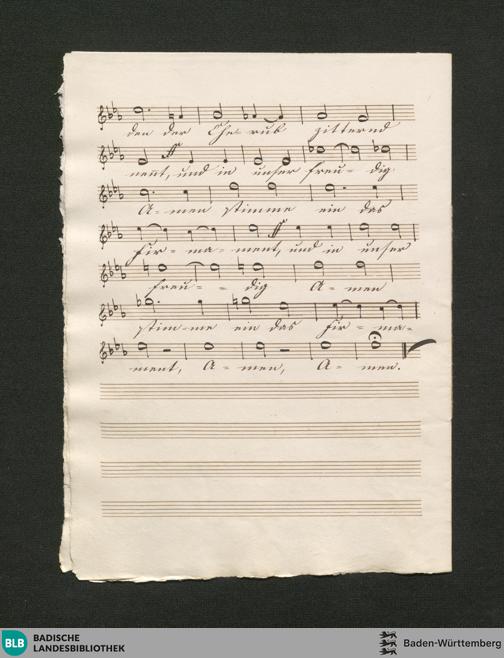 den der Cherub zitternd
nennt, und in unser freu- dig
A- men stimme ein das
Fir- ma- ment, und in unser
freu- - dig A- men
stim-me ein das Fir- ma-
ment, A- men, A- men.
BLB BADISCHE
LANDESBIBLIOTHEK
Baden-Württemberg